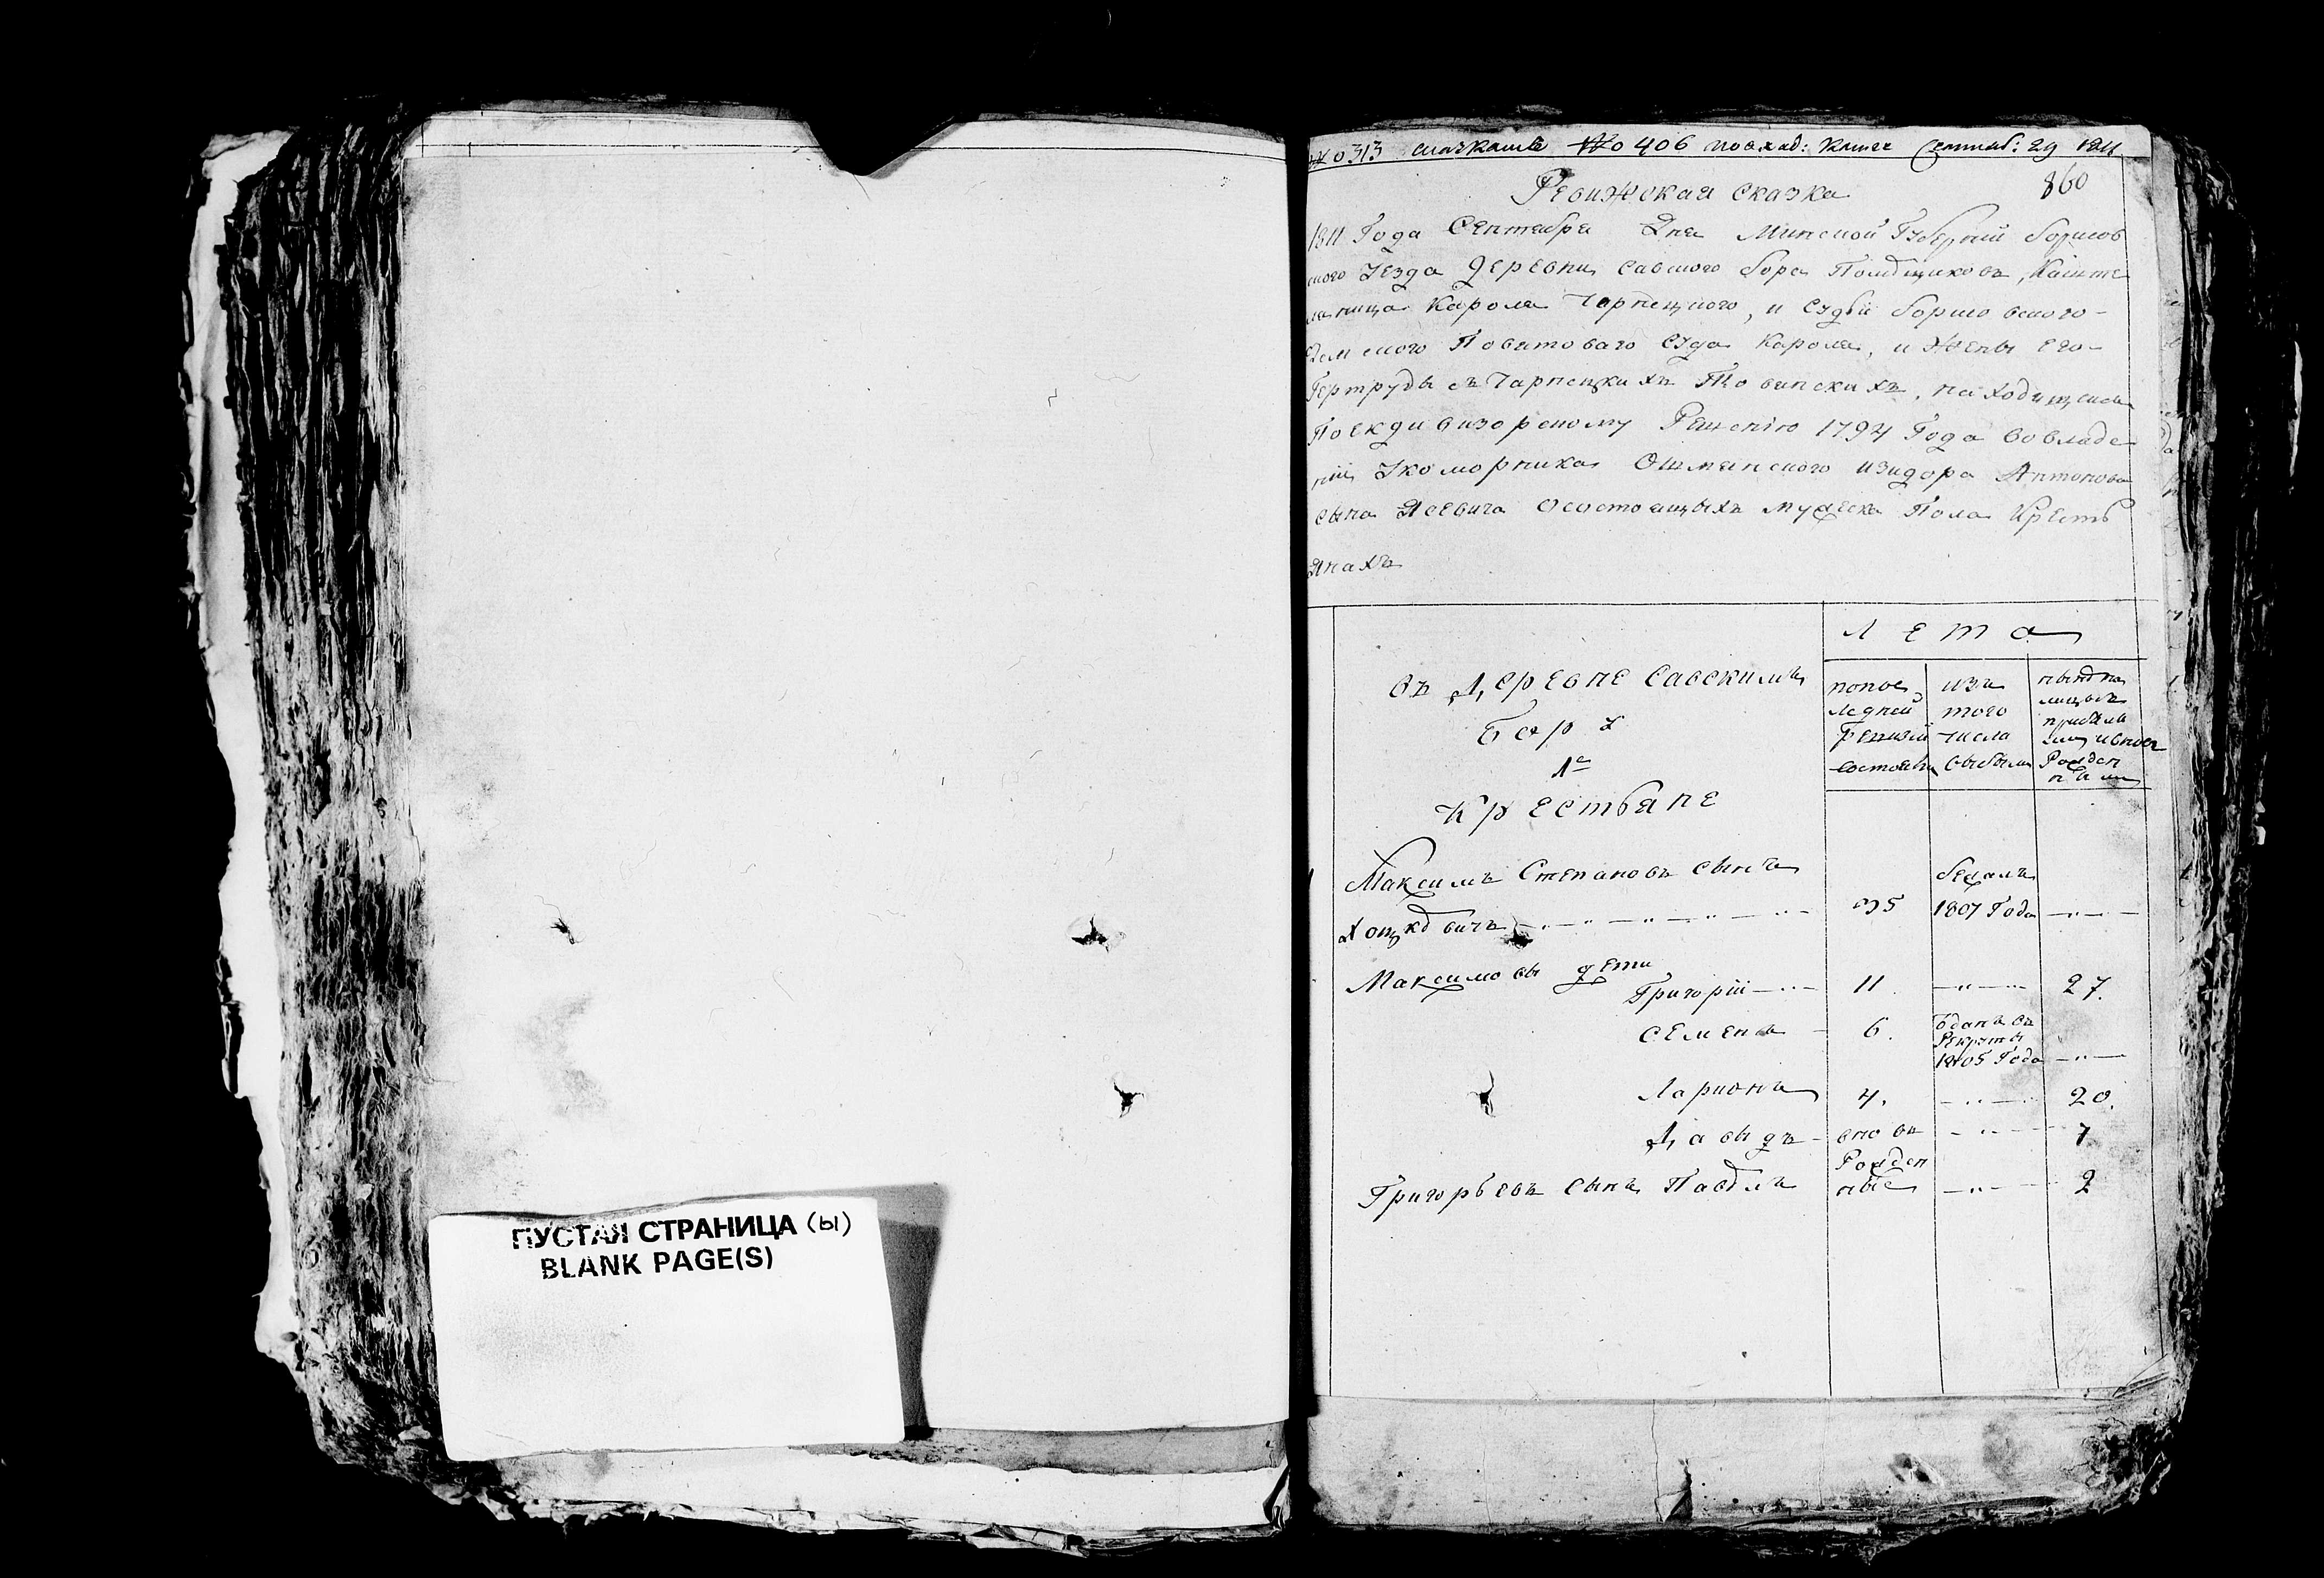 ПУСТАЯ СТРАНИЦА (ы)
BLANK PAGE(S)
№ 313 сказкамъ № 406 по вход: книге Сентяб: 29 1811
860
Ревижская сказка
1811 Года Сентября Дня Минской Губерніи борисов
ского Уезда Деревни савского бора Помѣщиковъ,
Кароля Чарнецкого, и Судьи борисовского
Земского Поветоваго Суда Кароля, и Жены Его
Гертруды съ Чарнецкихъ, находящейся
По екдивизорскому Решенію 1794 Года во владе
ніи Укоморника Ошменского изидора Антонова
сына Ясевича О состоящыхъ мужеска Пола Кресть
янахъ
Лета
въ Деревне Савскимъ
Бору
1е
Крестьяне
попос
ледней
Ревизіи
состояли
изъ
того
числа
выбыли
ныне на
лицо съ
прибыли
ми и вновь
Рожден
ными
Максимъ Степановъ сынъ
Хощѣвичъ 35 бежалъ 1807 Года
Максимовы дети
Григорій 11. 27.
Семенъ 6. Одданъ въ Рекруты 1805 Года
Ларионъ 4. 20.
Давыдъ вновь 7
Григорьевъ сынъ Павѣлъ Рожден ные 2